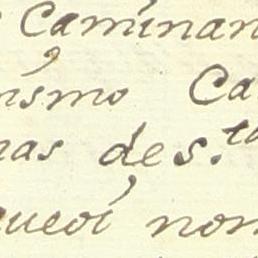 caminan
ismo Ca
nas de s.ta
quedi non